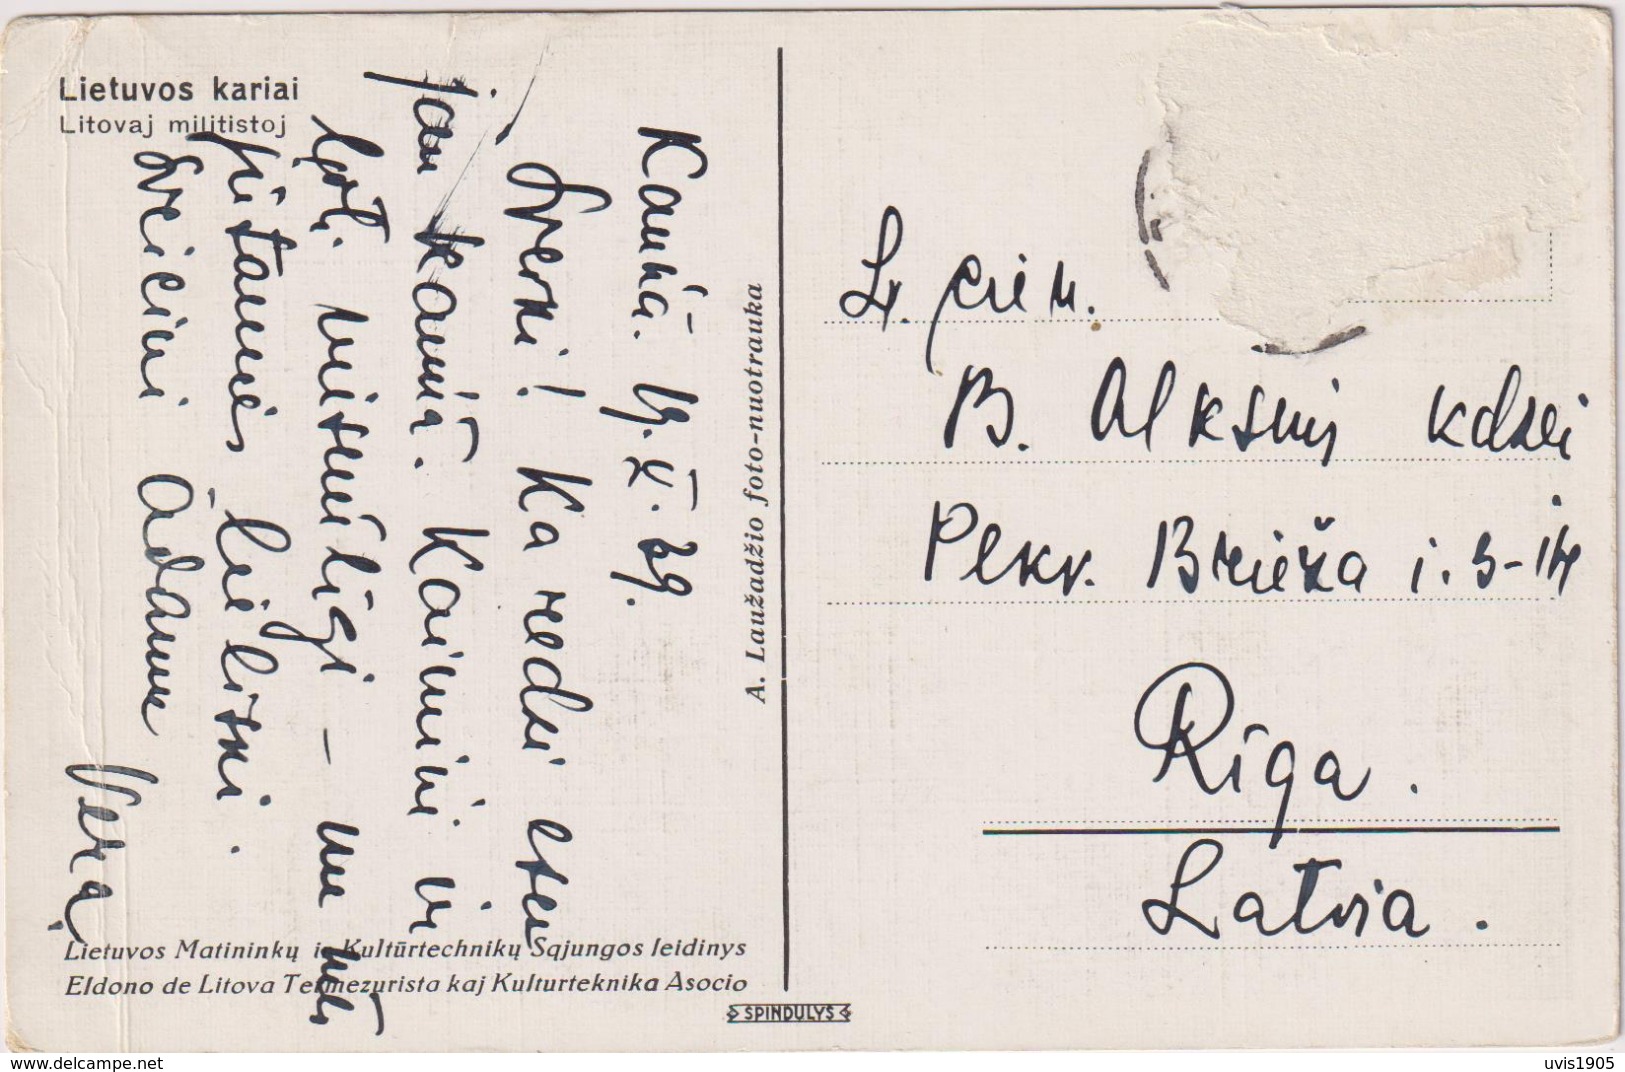 Lietuvos kariai
Litovaj militistoj
Kauņā. 19. X. 39.
Sveiki! Kā redzi esmu
jau Kauņā. Kaimiņi ir
ļoti viesmīlīgi – un
jūtamies lieliski.
Sveicini Ādamu
Vera
A. Laužadžio foto-nuotrauka
Lietuvos Matininkų ir Kultūrtechnikų Sąjungos leidinys
Eldono de Litova Termezurista kaj Kulturteknika Asocio
SPINDULYS
Ļ. cien.
B. Alksnis kdzei
Plkv. Brieža i. 5-14
Rīga.
Latvia.
www.delcampe.net
uvis1905